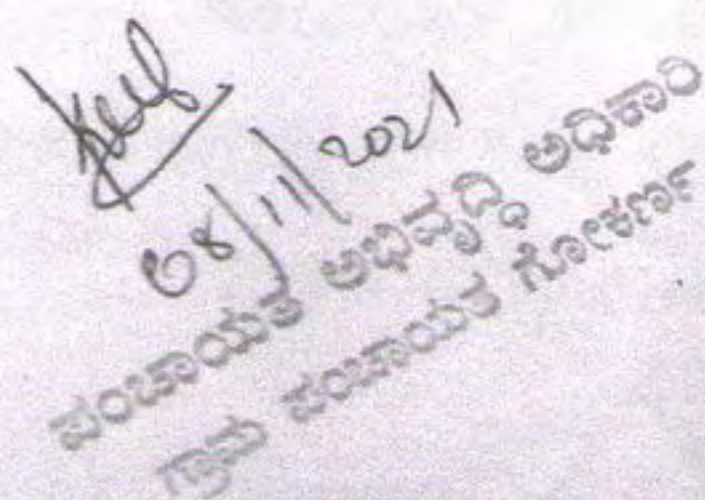 08/11/2021
ಪಂಚಾಯತ ಅಭಿವೃದ್ಧಿ ಅಧಿಕಾರಿ
ಗ್ರಾಮ ಪಂಚಾಯತ ಗೋಕರ್ಣ